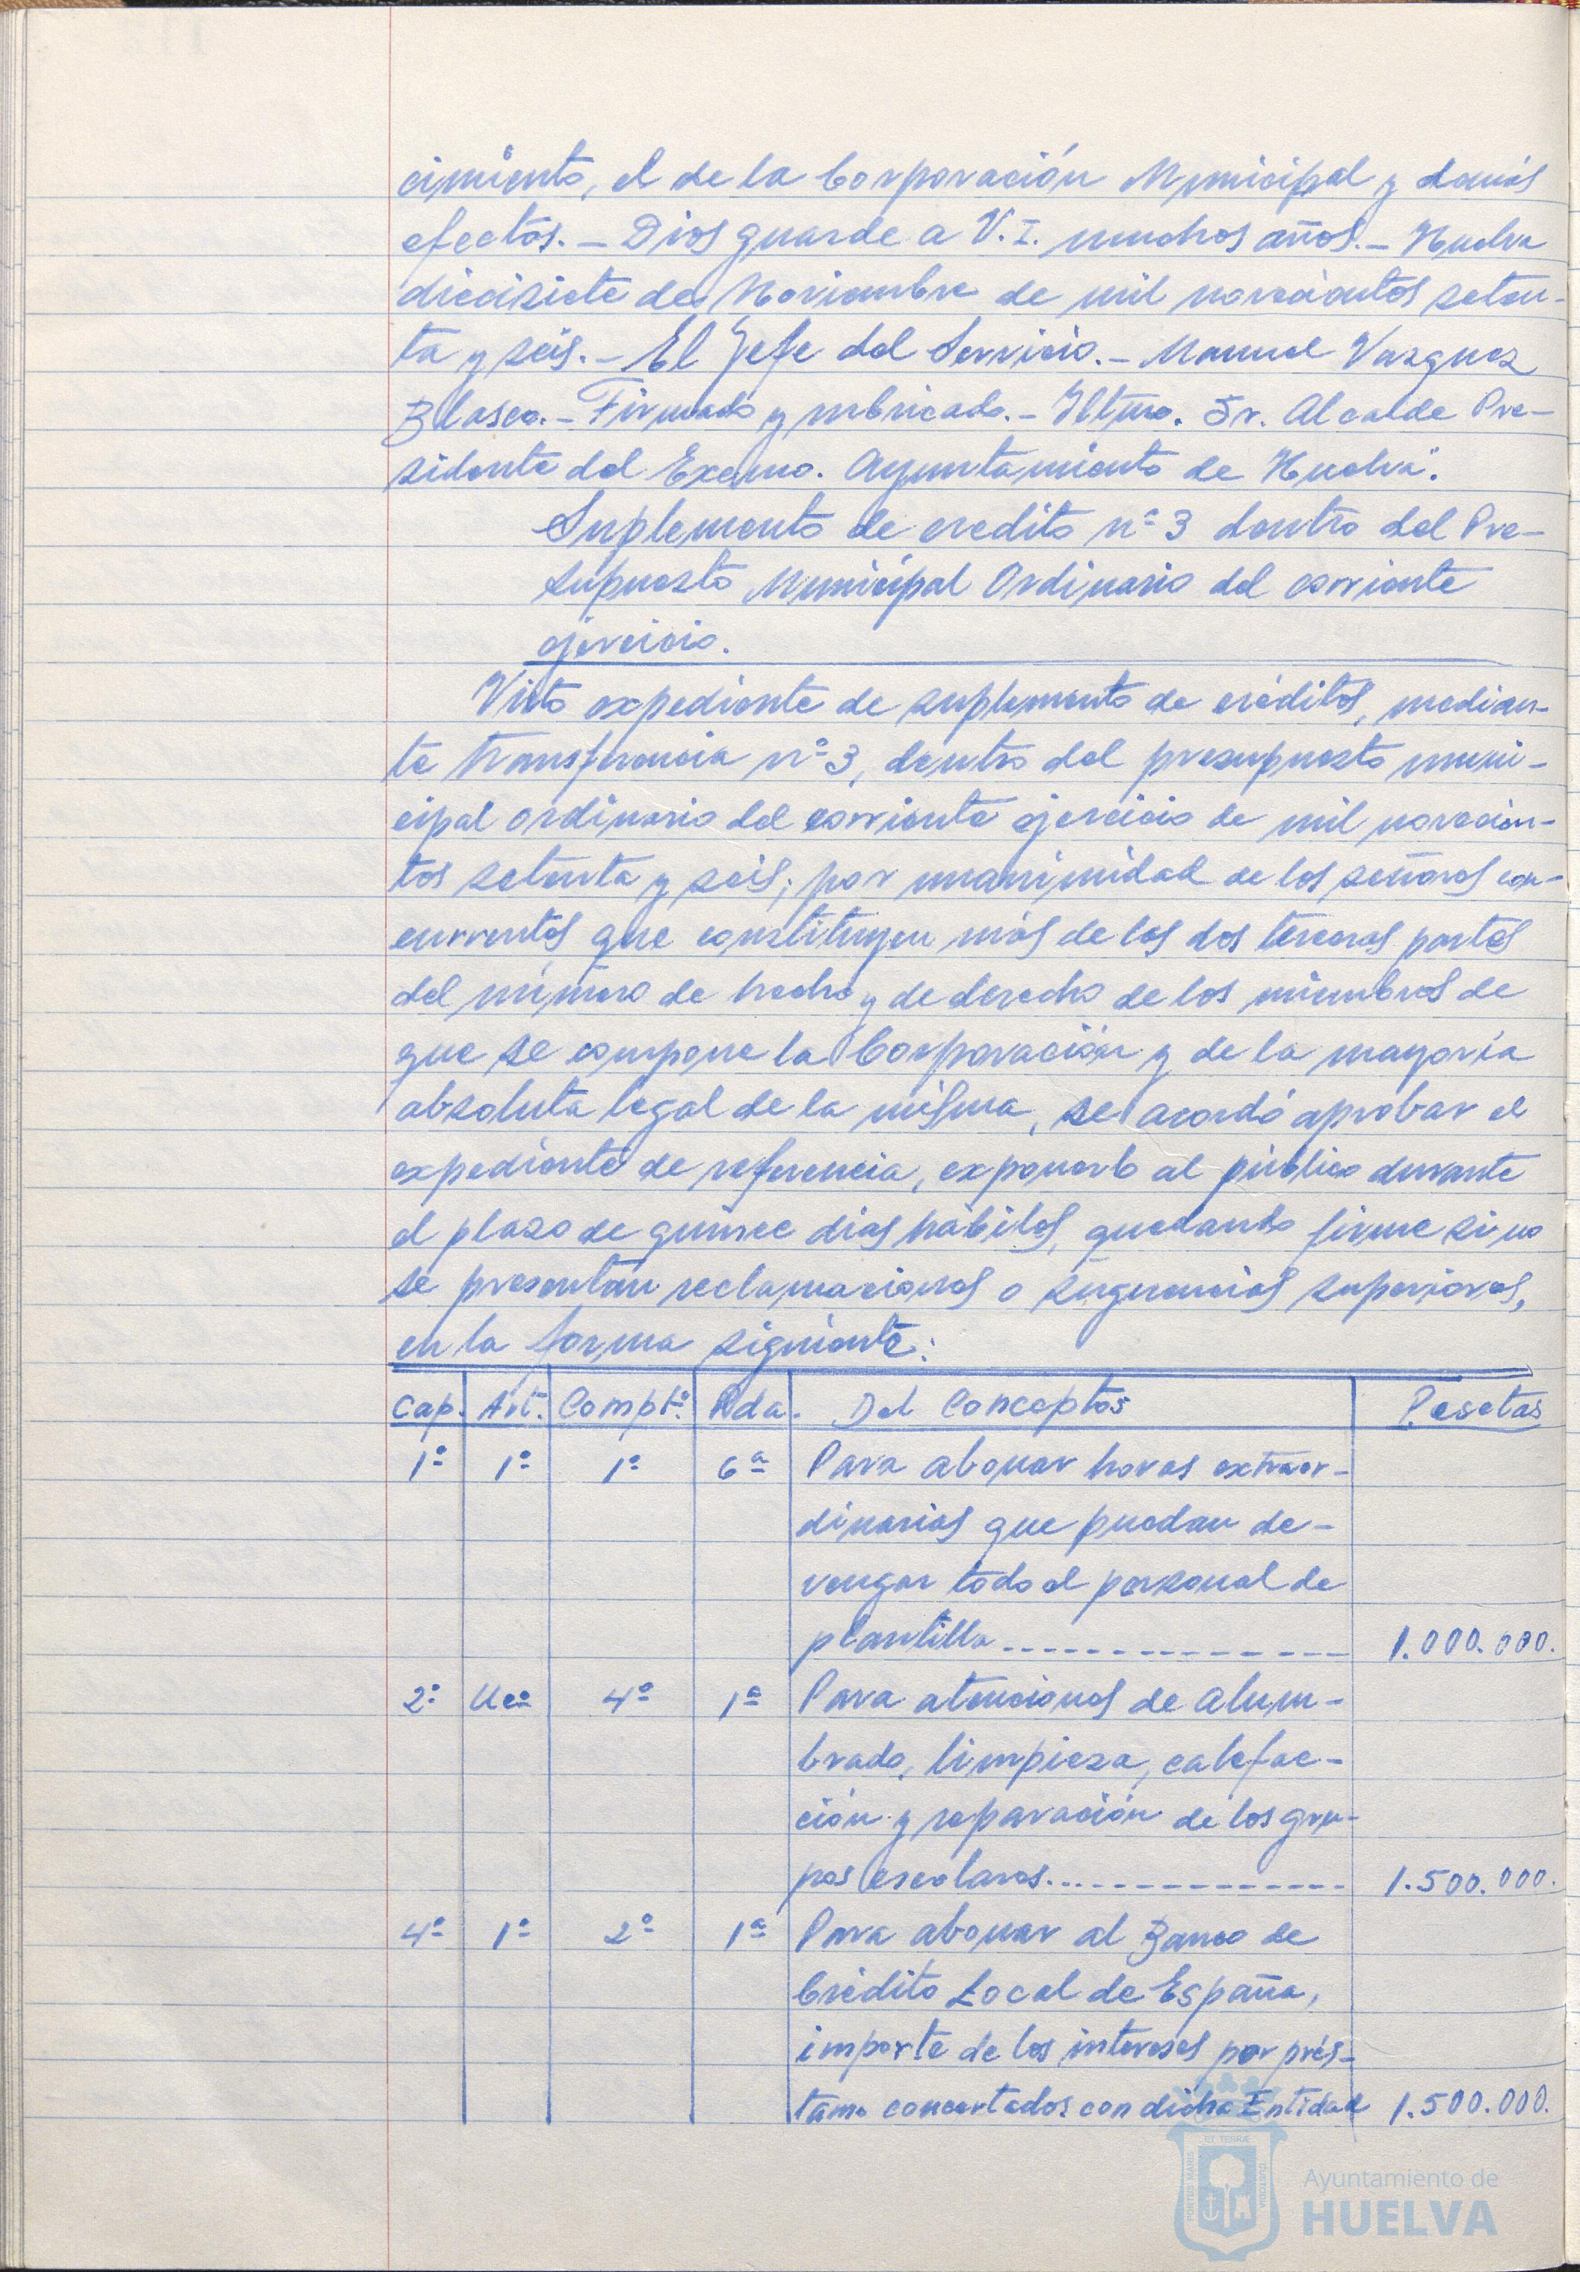 cimiento, el de la Corporación Municipal y demás
efectos.- Dios guarde a V.I. muchos años.- Huelva
diecisiete de Noviembre de mil novecientos seten-
ta y seis.- El Jefe del Servicio.- Manuel Vazquez
Blasco.- Firmado y rubricado.- Iltmo. Sr. Alcalde Pre-
sidente del Excmo. Ayuntamiento de Huelva".
Suplemento de credito nº 3 dentro del Pre-
supuesto Municipal Ordinario del corriente
ejercicio.
Visto expediente de suplemento de créditos, median-
te transferencia nº 3, dentro del presupuesto muni-
cipal ordinario del corriente ejercicio de mil novecien-
tos setenta y seis; por unanimidad de los señores con-
currentes que constituyen más de las dos terceras partes
del número de hecho y de derecho de los miembros de
que se compone la Corporación y de la mayoría
absoluta legal de la misma, se acordó aprobar el
expediente de referencia, exponerlo al público durante
el plazo de quince dias hábiles, quedando firme si no
se presentan reclamaciones o sugerencias superiores,
en la forma siguiente:
Cap. Art. Compto. Pda. Del Conceptos Pesetas
1º 1º 1º 6ª Para abonar horas extraor-
dinarias que puedan de-
vengar todo el personal de
plantilla ------------- 1.000.000.
2º Uco 4º 1ª Para atenciones de alum-
brado, limpieza, calefac-
ción y reparación de los gru-
pos escolares.------------- 1.500.000.
4º 1º 2º 1ª Para abonar al Banco de
Crédito Local de España,
importe de los intereses por prés-
tamo concertados con dicha Entidad 1.500.000.
PORTUS MARIS ET TERRÆ CUSTODIA
Ayuntamiento de
HUELVA